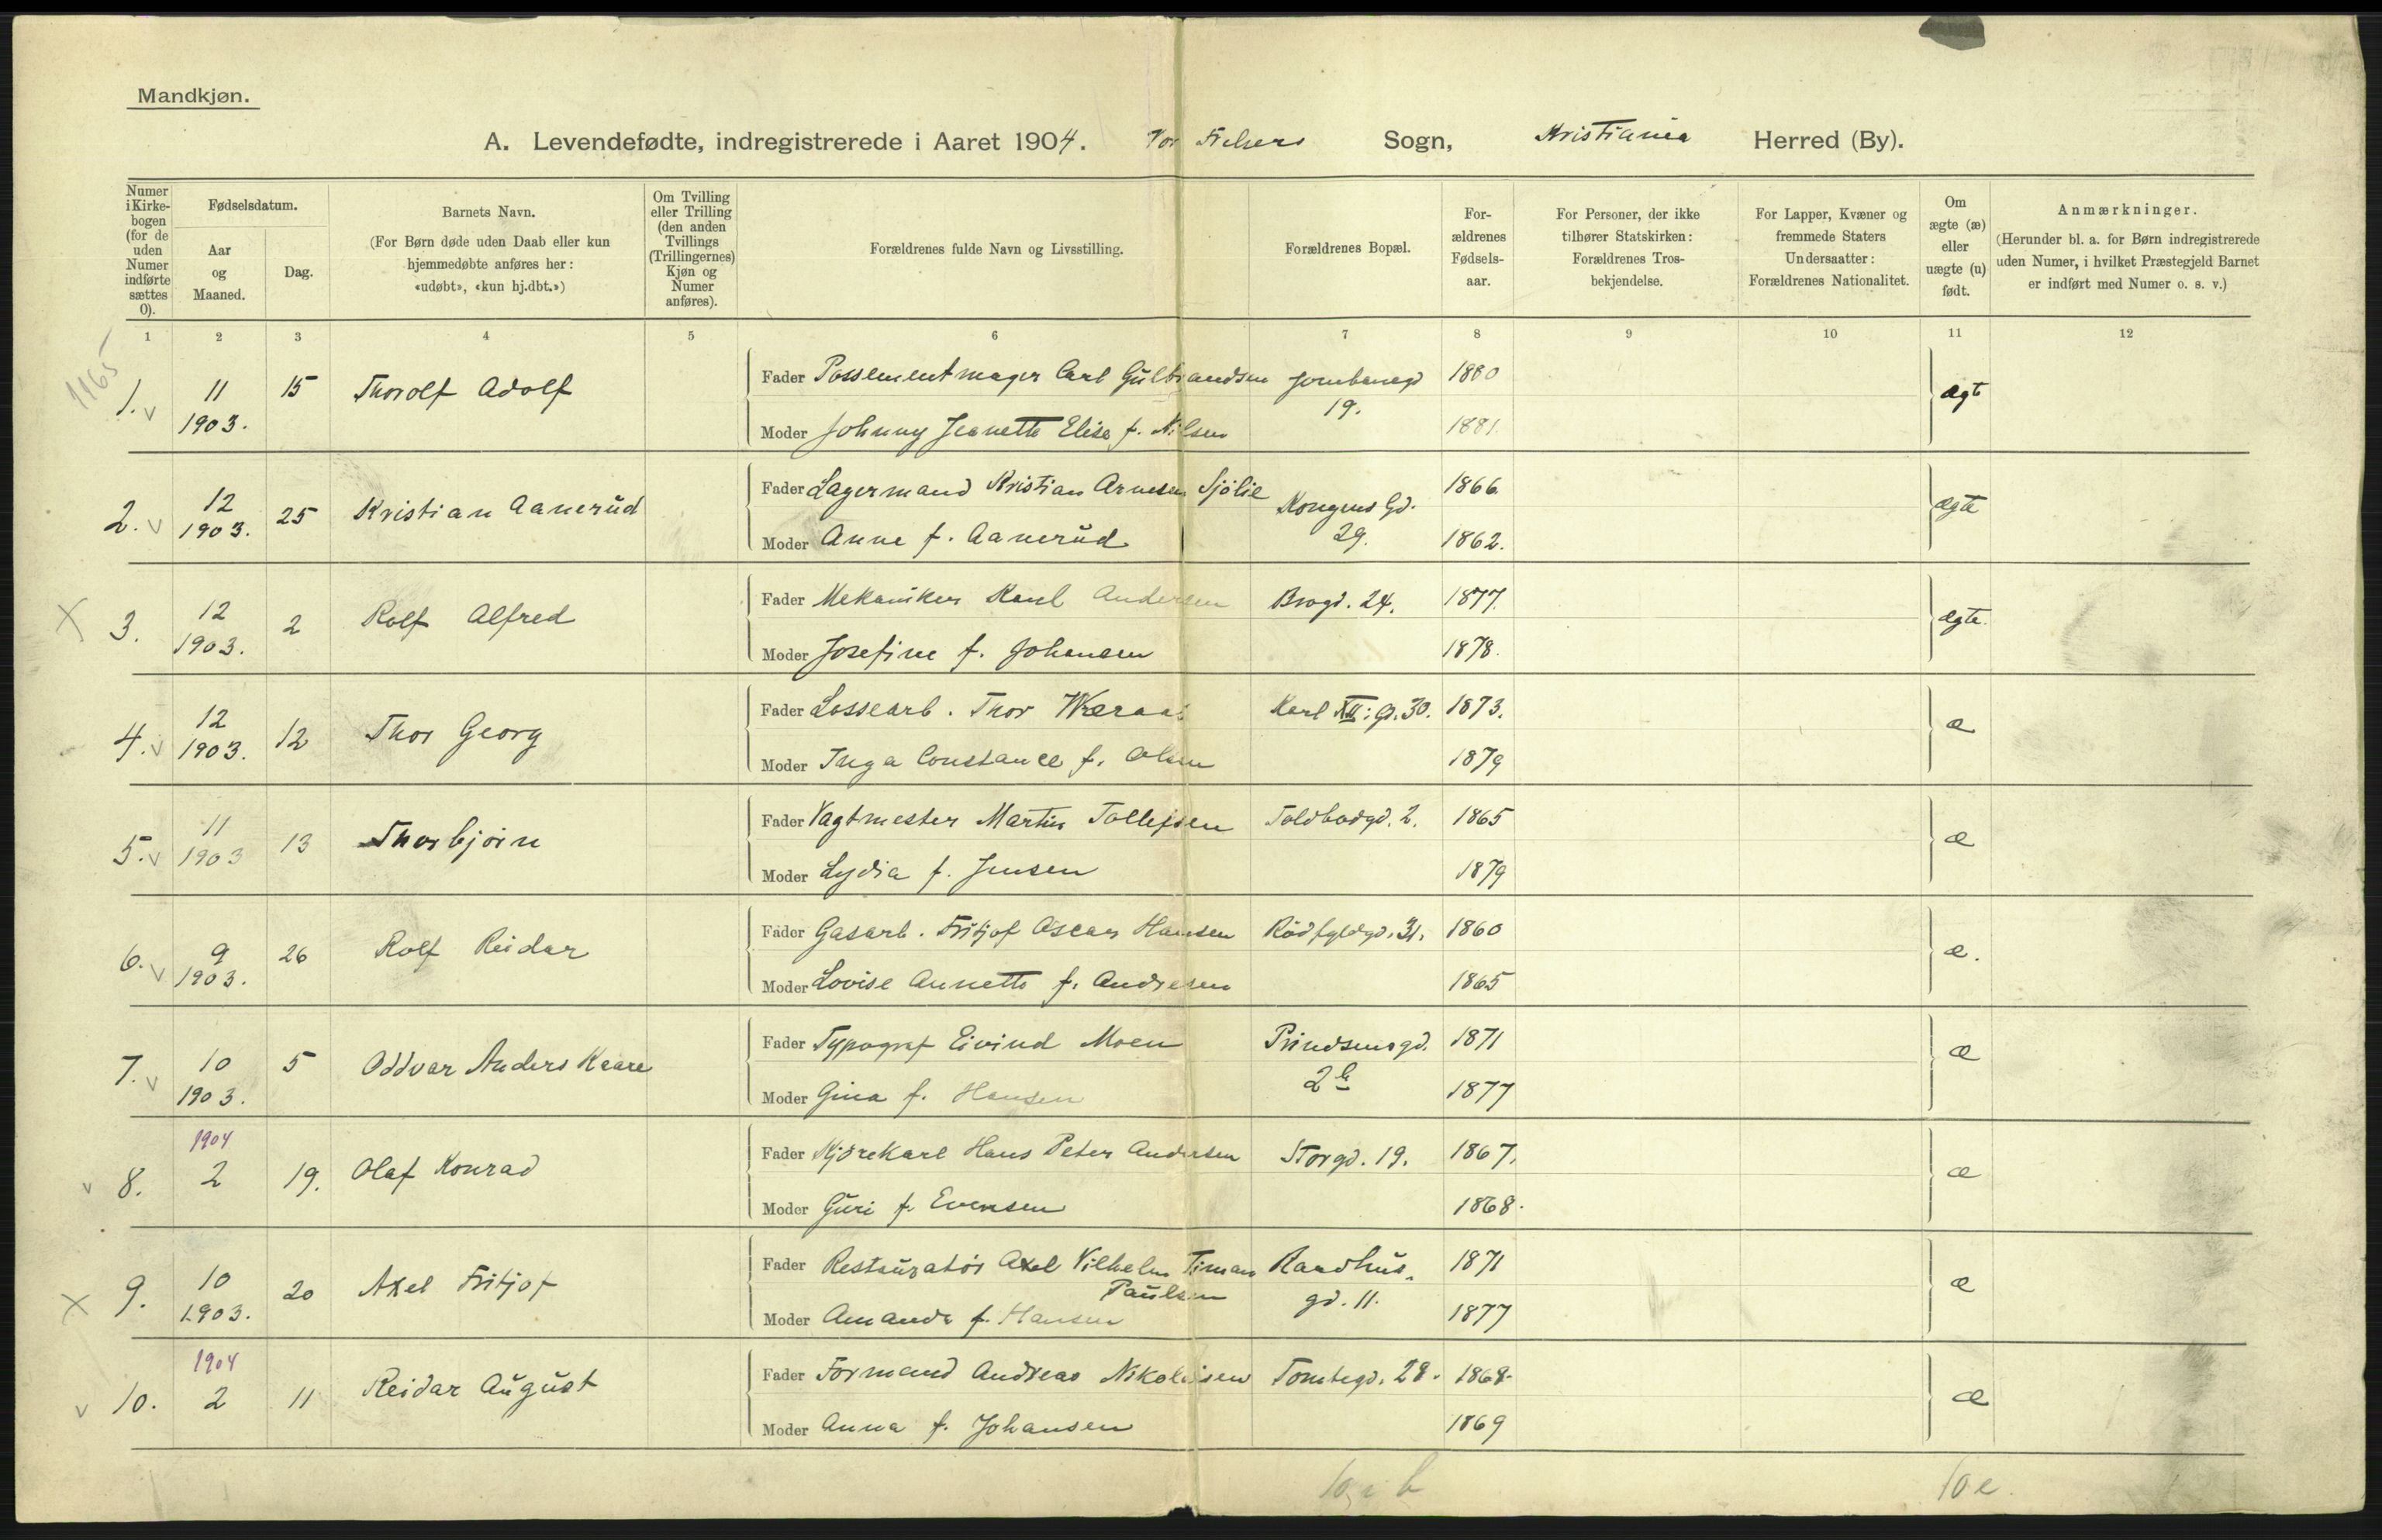 Mandkjøn.
A. Levendefødte, indregistrerede i Aaret 1904. Vor Frelsers Sogn, Kristiania Herred (By).
Numer i Kirkebogen (for de uden Numer indførte sættes 0).
Fødselsdatum.
Aar og Maaned.
Dag.
Barnets Navn.
(For Børn døde uden Daab eller kun
hjemmedøbte anføres her:
«udøbt», «kun hj.dbt.»)
Om Tvilling
eller Trilling
(den anden
Tvillings
(Trillingernes)
Kjøn og
Numer
anføres).
Forældrenes fulde Navn og Livsstilling.
Forældrenes Bopæl.
For-
ældrenes
Fødsels-
aar.
For Personer, der ikke
tilhører Statskirken:
Forældrenes Tros-
bekjendelse.
For Lapper, Kvæner og
fremmede Staters
Undersaatter:
Forældrenes Nationalitet.
Om
ægte (æ)
eller
uægte (u)
født.
Anmærkninger.
(Herunder bl. a. for Børn indregistrerede
uden Numer, i hvilket Præstegjeld Barnet
er indført med Numer o. s. v.)
1 2 3 4 5 6 7 8 9 10 11 12
1165
1. v 11 15 Thorolf Adolf Fader Possementmager Carl Gulbrandsen Jernbanegd 1880 ægt
1903. 19.
Moder Johnny Jeanette Elise f. Nilsen 1881.
2. v 12 25 Kristian Aanerud Fader Lagermand Kristian Arnesen Sjölie Kongens Gd. 1866 ægte
1903. 29.
Moder Anne f. Aanerud 1862.
X 3. 12 2 Rolf Alfred Fader Mekaniker Karl Andersen Brogd. 24. 1877. ægte.
1903.
Moder Josefine f. Johansen 1878.
4. v 12 12 Thor Georg Fader Lossearb. Thor Karl XII: G. 30. 1873. æ
1903.
Moder Inga Constance f. Olsen 1879
5. v 11 13 Thorbjörn Fader Vagtmester Martin Tollefsen Toldbodgd. 2. 1865 æ
1903
Moder Lydia f. Jensen 1879
6. v 9 26 Rolf Reidar Fader Gasarb. Fritjof Oscar Hansen Rödfyldgd. 31. 1860 æ.
1903.
Moder Lovise Annette f. Andresen 1865
7. v 10 5 Oddvar Anders Kaare Fader Typograf Eivind Moen Prindsensgd. 1871 æ
1903. 2 b
Moder Gina f. Hansen 1877
1904
v 8. 2 19. Olaf Konrad Fader Kjörekarl Hans Peter Andersen Storgd. 19. 1867. æ
Moder Guri f. Evensen 1868.
X 9. 10 20 Axel Fritjof Fader Restauratör Axel Vilhelm Timan Raadhus- 1871 æ
1903. Paulsen gd. 11.
Moder Amanda f. Hansen 1877
1904
v 10. 2 11 Reidar August Fader Formand Andreas Nikolaisen Tomtegd. 28. 1868. æ
Moder Anna f. Johansen 1869
10 i b 10 e.